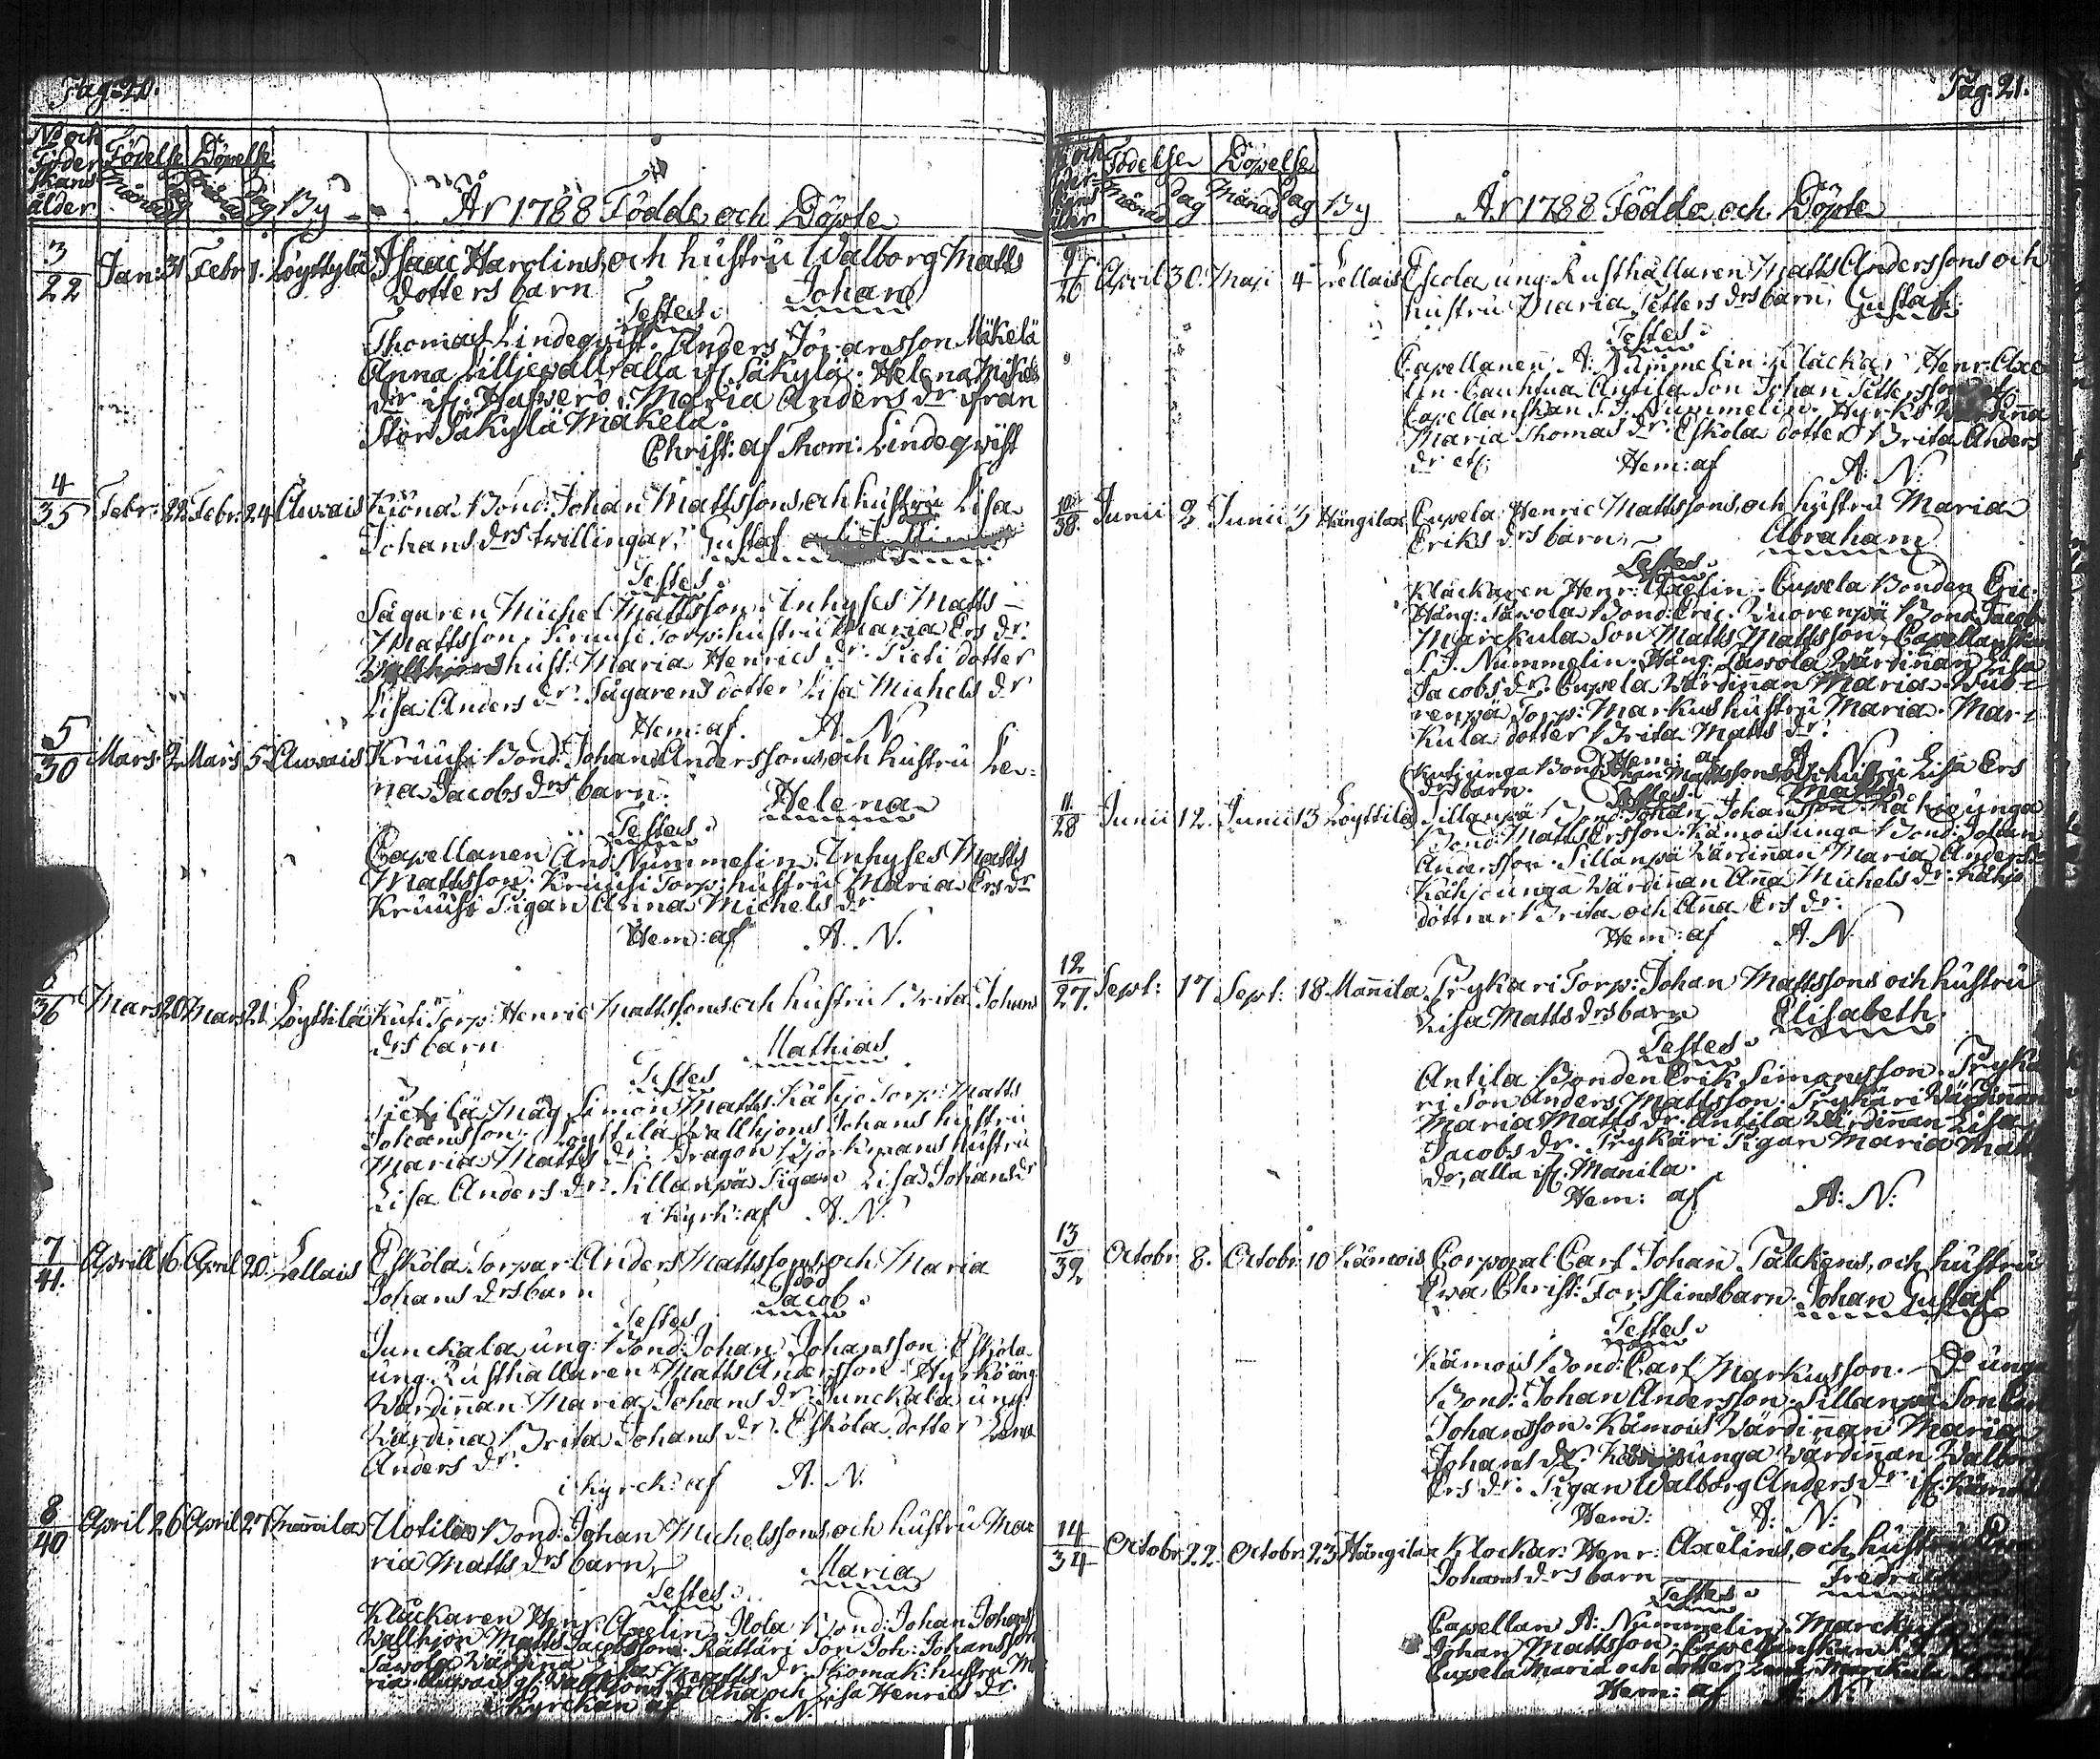 Pag. 20.
No och Föder skans ålder
Födelse Månad Dag
Döpelse Månad Dag
By
År 1788 Födde och Döpte
3/22 Jan: 31 Febr. 1. Löyttylä Isaac Harolins, och hustru Walborg Matts
Dotters barn Johan
Testes:
Thomas Lindeqvist. Anders Jöransson Mäkelä
Anna Lilljewall alla if. Säkylä. Helena Michels
dr if. Haswerö. Maria Anders dr ifrån
Stor Säkylä Mäkelä.
Christ: af Thom: Lindeqwist
4/35 Febr: 22 Febr: 24 Auvais Kiöna Bond: Johan Mattssons och hustru Lisa
Johans drs twillingar, Gustaf
Testes:
Sågaren Michel Mattsson. Inhyses Matts
Mattsson. Kruusi Torp: hustru Maria Ers dr.
hust: Maria Henrics dr. Pieti dotter
Lisa Anders dr. Sågarens dotter Lisa Michels dr
Hem: af. A. N.
5/30 Mars 2 Mars 5 Auvais Kruusi Bond: Johan Anderssons och hustru Le=
na Jacobs drs barn. Helena
Testes:
Capellanen And: Nummelin. Inhyses Matts
Mattsson. Kruusi Torp: hustru Maria Ers dr
Kruusi Pigan Anna Michels dr
Hem: af A. N.
/36 Mars 20 Mars 21 Löyttilä Kuti Torp: Henric Mattssons och hustru Brita Johans
drs barn Mathias
Testes
Måg Simon Matts. Kåhjo Torp: Matts
Johansson. Löyttilä Wallhjons Johans hustru
Maria Matts dr. Dragon Björkmans hustru
Lisa Anders dr. Sillanpä Pigan Lisa Johans dr
i Kyrk: af A. N.
7/41. Aprill 16 April 20. Lellais Eskola Torpar Anders Mattssons, och Maria
Johans drs barn Jacob.
Testes
Junckala ung: Bond: Johan Johansson. Eskola
ung. Rusthållaren Matts Andersson. Hyrkö ung:
Wärdinnan Maria Johans dr. Junckala ung
Wärdinna Brita Johans dr. Eskola dotter Lena
Anders dr.
i Kyrck: af A. N.
8/40 April 26 April 27 Mannila Uotila Bond: Johan Michelssons och hustru Ma
ria Matts drs barn Maria
Testes:
Klåckaren Henr: Axelin. Ilola Bond: Johan Johanss
Wallhjon Matts Jacobsson. Rättäri Son Joh: Johansson
Sawola Wärdinna Lisa Matts dr. Skomak: hustru Ma
ria Anna och Lisa Henrics dr.
i Kyrckan af A. N.
Pag. 21.
Födelse Månad Dag
Döpelse Månad Dag
By
År 1788 Födde och Döpte
9/26 April 30. Maji 4 Lellais Escola ung. Rusthållaren Matts Anderssons och
hustru Maria Petters drs barn, Gustaf.
Testes:
Capellanen A: Nummelin. Klåckar Henr: Axe
lin. Cauhtua Antila Son Johan Pettersson
Capellanskan S. J. Nummelin. Hyrkö
Maria Thomas dr. Eskola dotter Brita Anders
dr etc: Hem: af A: N:
10/38. Junii 2 Junii 3 Hångila Cupela Henric Mattssons, och hustru Maria
Eriks drs barn, Abraham
Testes:
Klåckaren Henr: Axelin. Cupela Bonden Eric.
Hång: Sawola Bond: Eric. Wuorenpä Bond: Jacob
Marckula Son Matts Mattsson. Capellanskan
S. J. Nummelin. Hång: Sawola Wärdinnan Lisa
Jacobs dr. Cupela Wärdinnan Maria. Wuo=
renpä Torp: Markus hustru Maria. Mar=
kula dotter Brita Matts dr.
Hem: af A. N.
11/28 Junii 12. Junii 13 Löyttilä Kuti unga Bond Mattssons och hustru Lisa Ers
drs barn. Matts
Testes:
Sillanpä Bond: Johan Johansson. Kåhjo unga
Bond: Matts Ersson. Kämois unga Bond: Johan
Andersson. Sillanpä Wärdinnan Maria Anders dr
Kåhjo unga Wärdinnan Anna Michels dr. Kåhjo
döttrar Brita och Anna Ers dr.
Hem: af A. N
12/27. Sept: 17 Sept: 18 Mannila Prykäri Torp: Johan Mattssons och hustru
Lisa Matts drs barn Elisabeth.
Testes:
Antila Bonden Erik Simonsson. Prykä
ri Son Anders Mattsson. Prykäri Wärdinnan
Maria Matts dr. Antila Wärdinnan Lisa
Jacobs dr. Prykäri Pigan Maria Matts
dr, alla if. Manila.
Hem: af A: N:
13/39 Octobr 8. Octobr 10 Kämois Corporal Carl Johan Fälckens, och hustru
Ewa Christ: Forsslins barn. Johan Gustaf
Testes:
Kämois Bond: Carl Markusson. Do unga
Bond: Johan Andersson. Sillanpä Son
Johansson. Kämois Wärdinnan Maria
Johans dr. unga Wärdinnan Walbor
Ers dr. Pigan Walborg Anders dr if. Kämois
Hem: A: N:
14/34 Octobr 22 Octobr 23 Hångila Klockar: Henr: Axelins, och hustru
Johans drs barn Fredric
Testes:
Capellan A: Nummelin. Marckula
Johan Mattsson. Capellanskan
Cupela Maria och dotter Lena. Marckula
Hem: af A: N: